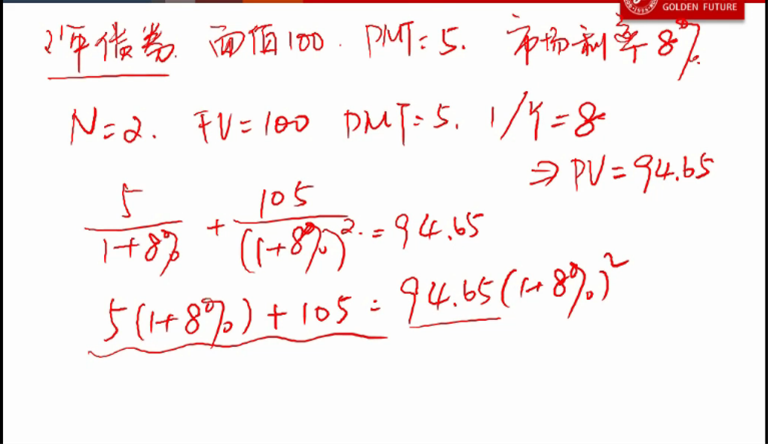 GOLDEN FUTURE
2年债券 面值100. PMT=5. 市场利率8%.
N=2. FV=100 PMT=5. I/Y=8
⇒ PV=94.65
5/(1+8%) + 105/(1+8%)². = 94.65
5(1+8%)+105 = 94.65(1+8%)²